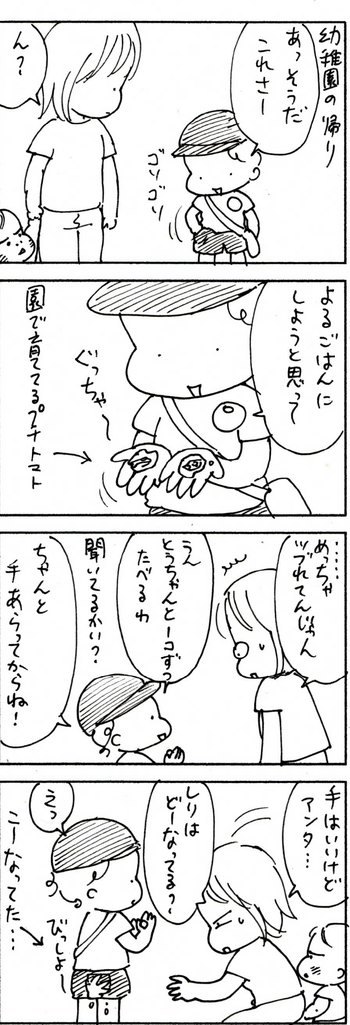 幼稚園の帰り
あっそうだ
これさー
ゴソゴソ
ん?
よるごはんに
しようと思って
ぐっちゃ〜
園で育ててるプチトマト
……
めっちゃ
ツブれてんじゃん
うん
とうちゃんと一コずつ
たべるわ
聞いてるかい?
ちゃんと
手あらってからね!
手はいいけど
アンタ…
しりは
どーなってるっ
えっ
びっしょ〜
こーなってた…